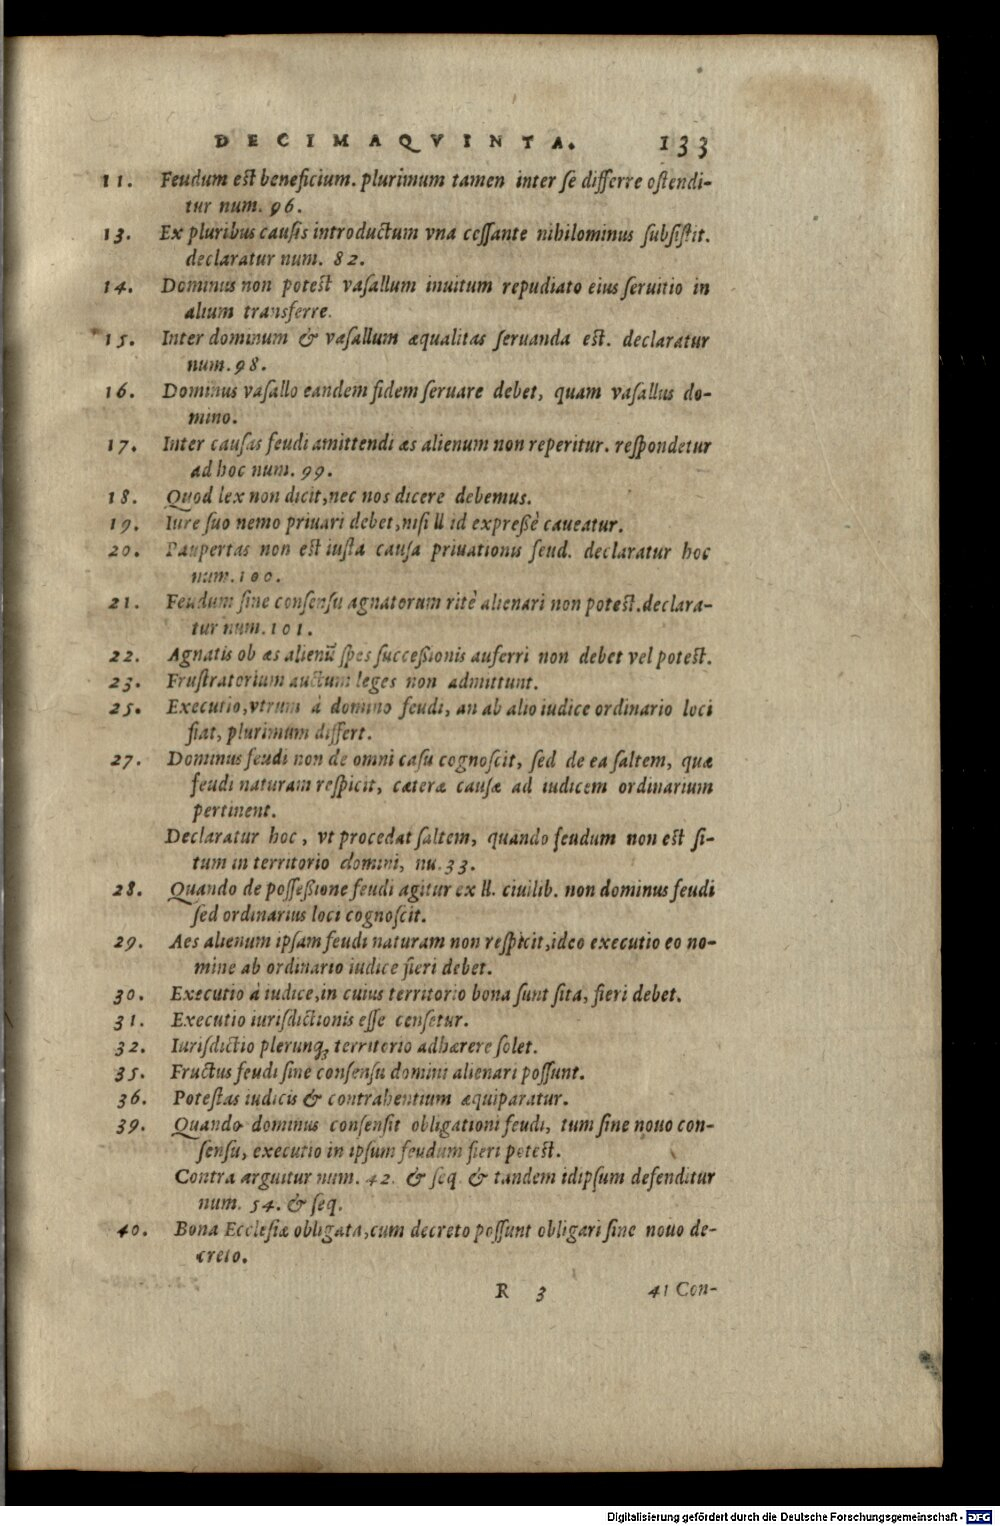 DECIMAQVINTA. 133
11. Feudum est beneficium. plurimum tamen inter se differre ostendi-
tur num. 96.
13. Ex pluribus causis introductum vna cessante nihilominus subsistit.
declaratur num. 82.
14. Dominus non potest vasallum inuitum repudiato eius seruitio in
alium transferre.
15. Inter dominum & vasallum æqualitas seruanda est. declaratur
num. 98.
16. Dominus vasallo eandem fidem seruare debet, quam vasallus do-
mino.
17. Inter causas feudi amittendi æs alienum non reperitur. respondetur
ad hoc num. 99.
18. Quod lex non dicit, nec nos dicere debemus.
19. Iure suo nemo priuari debet, nisi ll id expreßè caueatur.
20. Paupertas non est iusta causa priuationis feud. declaratur hoc
num. 100.
21. Feudum sine consensu agnatorum ritè alienari non potest. declara-
tur num. 101.
22. Agnatis ob æs alienũ spes succeßionis auferri non debet vel potest.
23. Frustratorium auctum leges non admittunt.
25. Executio, vtrum à domino feudi, an ab alio iudice ordinario loci
fiat, plurimum differt.
27. Dominus feudi non de omni casu cognoscit, sed de ea saltem, quæ
feudi naturam respicit, cæteræ causæ ad iudicem ordinarium
pertinent.
Declaratur hoc, vt procedat saltem, quando feudum non est si-
tum in territorio domini, nu. 33.
28. Quando de posseßione feudi agitur ex ll. ciuilib. non dominus feudi
sed ordinarius loci cognoscit.
29. Aes alienum ipsam feudi naturam non respicit, ideo executio eo no-
mine ab ordinario iudice fieri debet.
30. Executio à iudice, in cuius territorio bona sunt sita, fieri debet.
31. Executio iurisdictionis esse censetur.
32. Iurisdictio plerunq; territorio adhærere solet.
35. Fructus feudi sine consensu domini alienari possunt.
36. Potestas iudicis & contrahentium æquiparatur.
39. Quando dominus consensit obligationi feudi, tum sine nouo con-
sensu, executio in ipsum feudum fieri potest.
Contra arguitur num. 42. & seq. & tandem idipsum defenditur
num. 54. & seq.
40. Bona Ecclesiæ obligata, cum decreto possunt obligari sine nouo de-
creto.
R 3 41 Con-
Digitalisierung gefördert durch die Deutsche Forschungsgemeinschaft - DFG